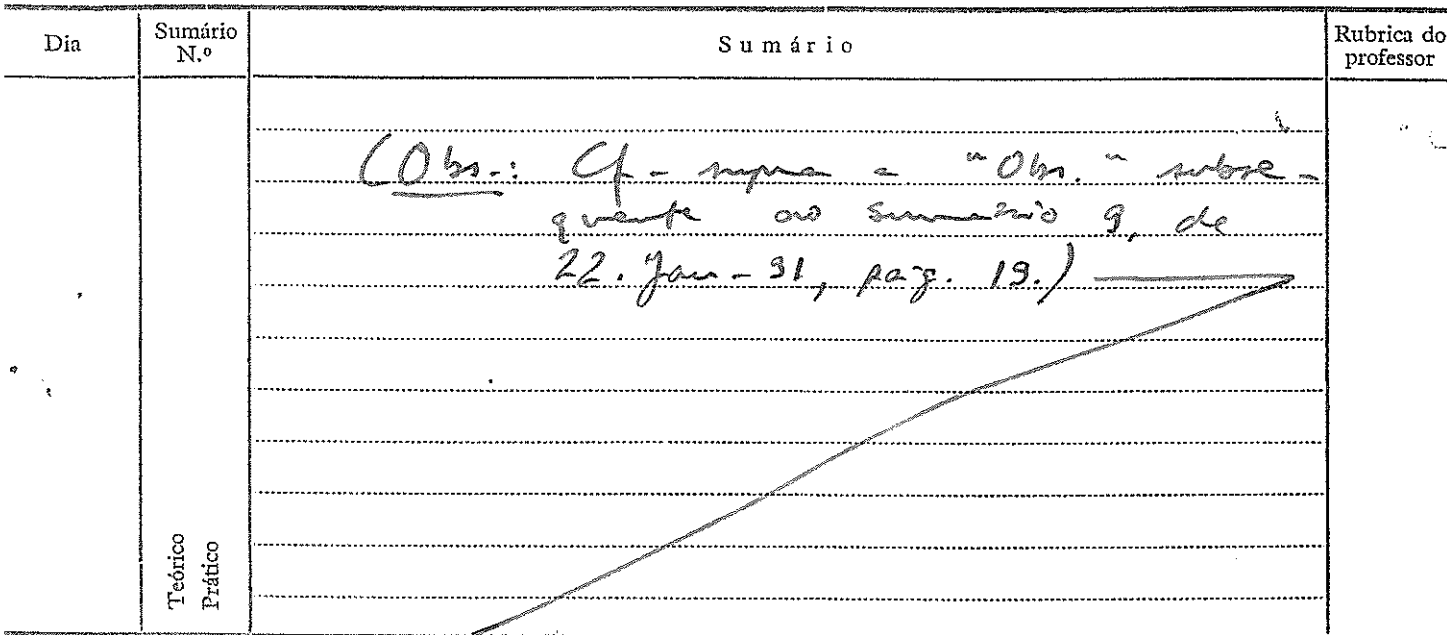 Dia
Sumário N.º
Sumário
Rubrica do professor
(Obs.: Cf. supra a "Obs." subse-
quente ao Sumário 9, de
22.Jan-91, pág. 19.)
Teórico
Prático